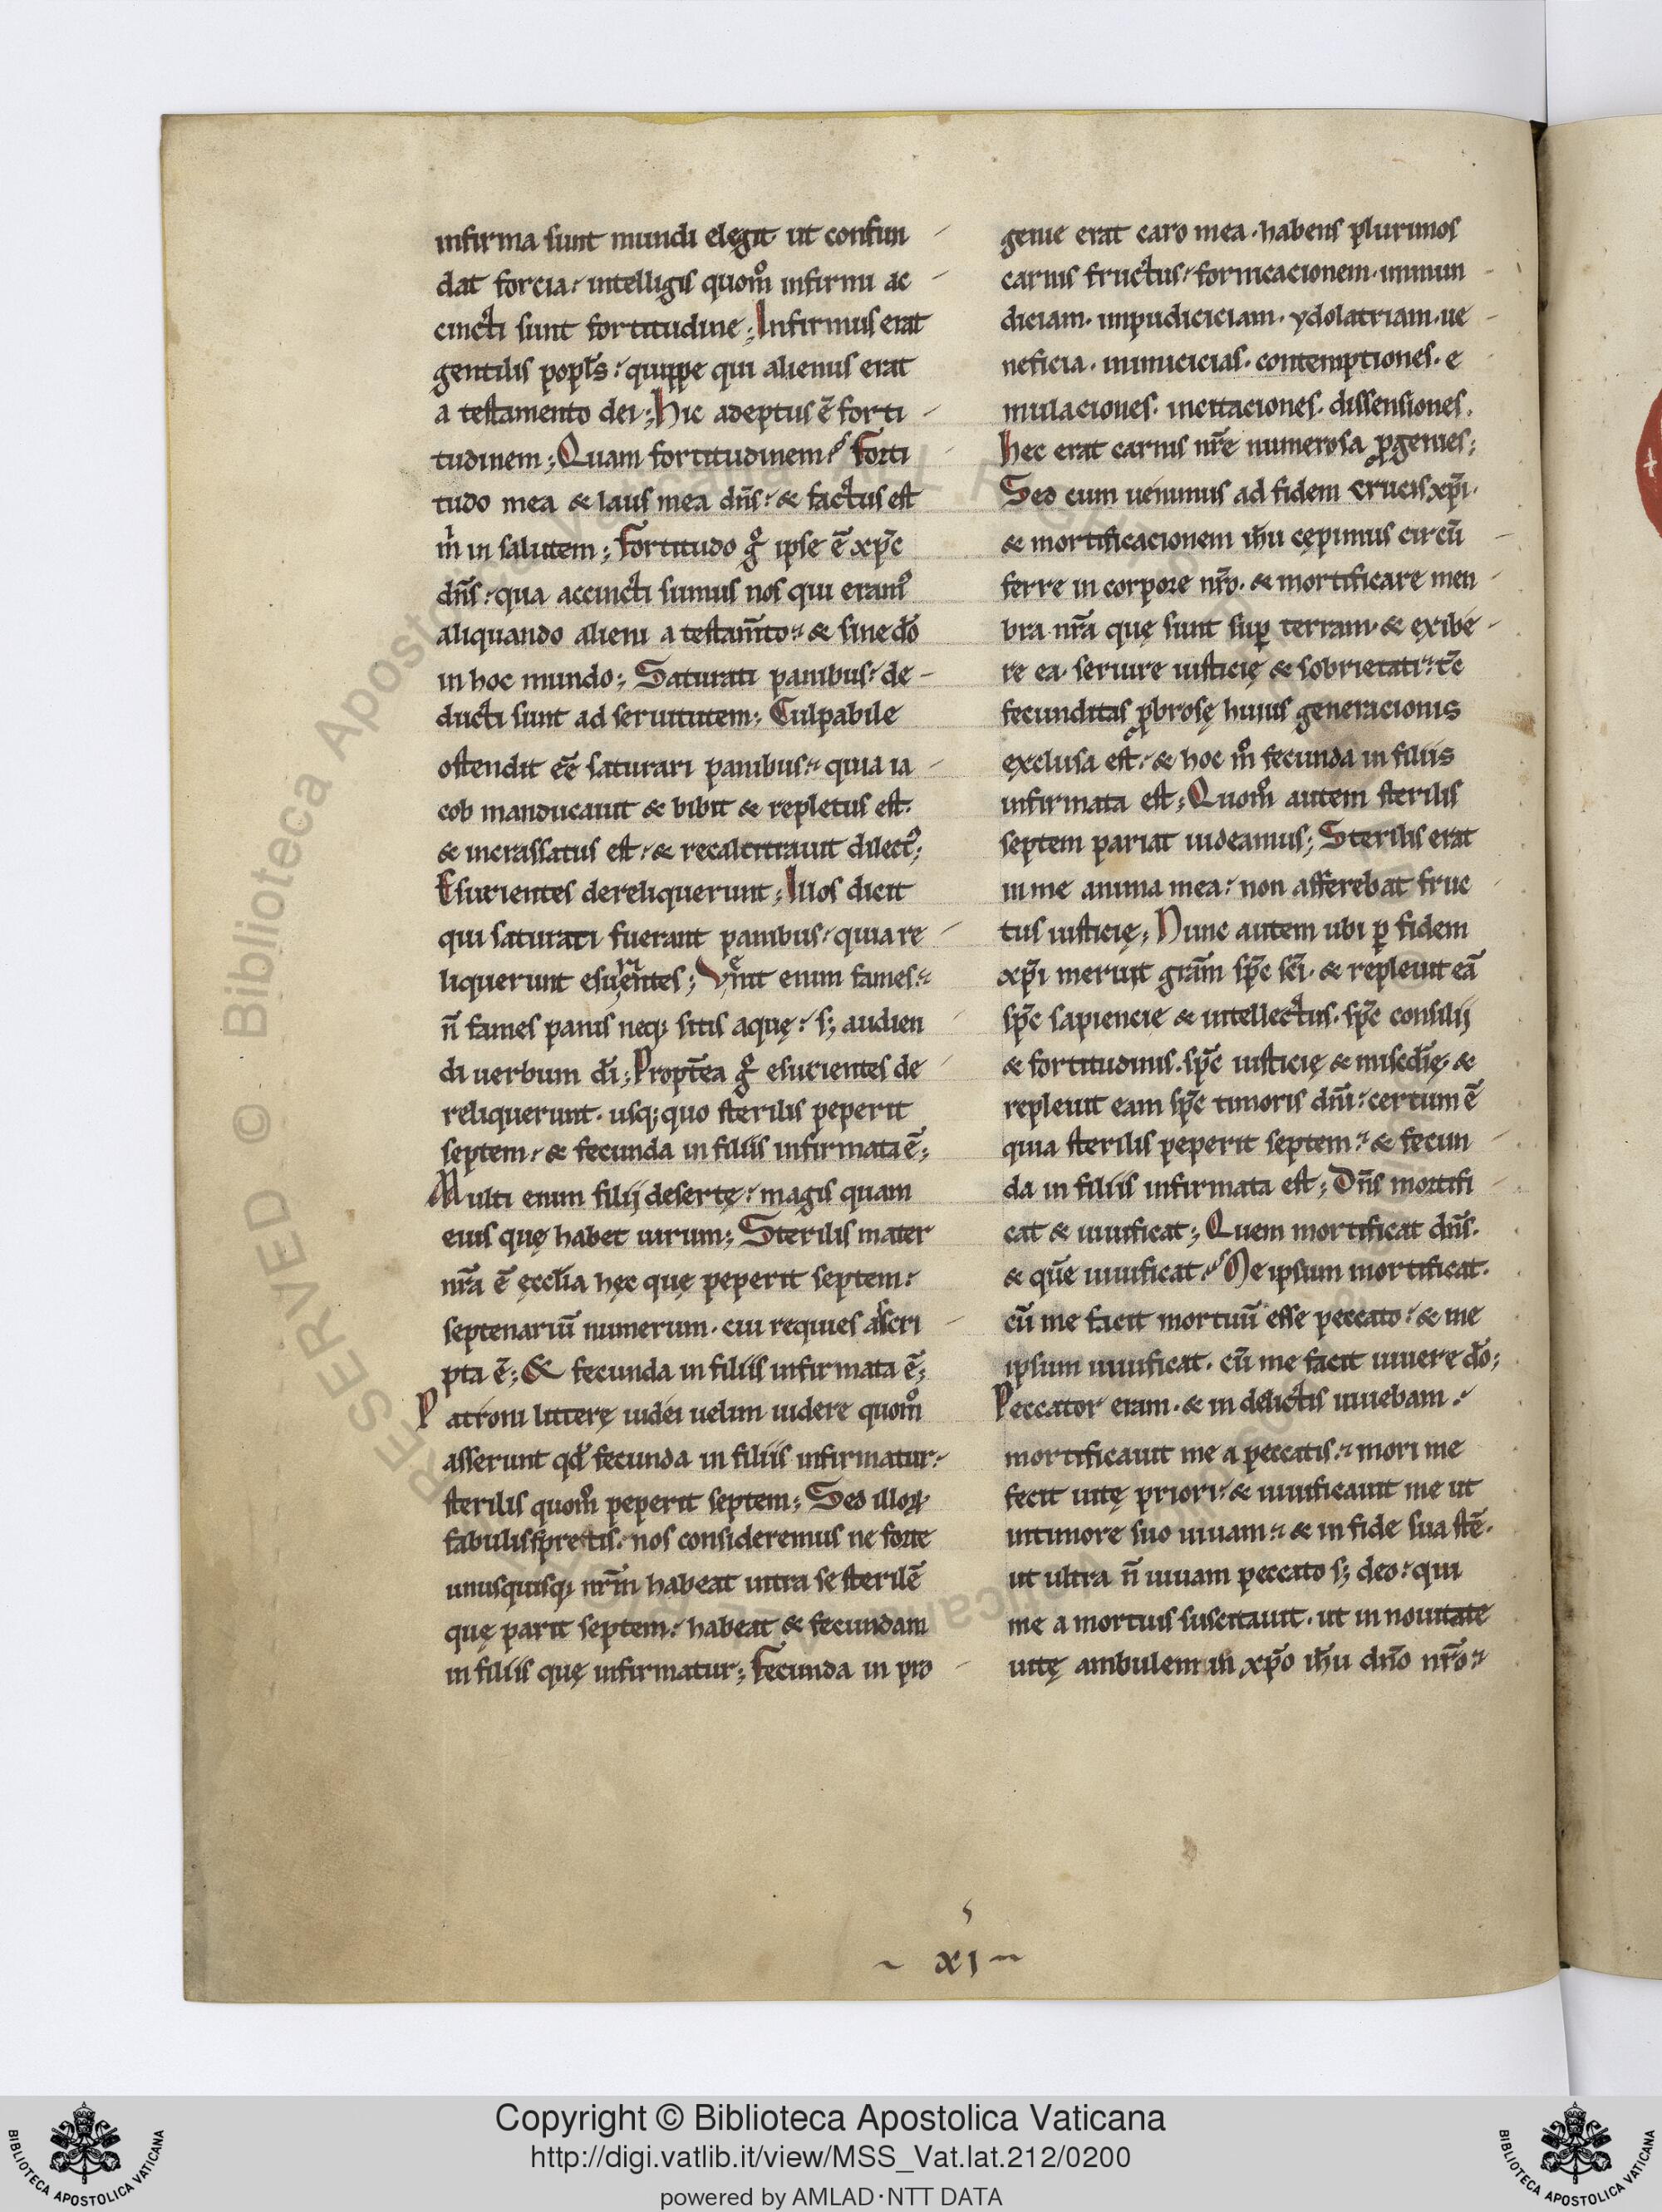 infirma sunt mundi elegit ut confun
dat forcia. intelligis quom̊ infirmi ac
cincti sunt fortitudine; Infirmus erat
gentilis popl̄s. quippe qui alienus erat
a testamento dei; Hic adeptus ē forti
tudinem; Quam fortitudinem? Forti
tudo mea & laus mea dn̄s. & factus est
m̄ in salutem; Fortitudo g̊ ipse ē xp̄c
dn̄s. qua accincti sumus nos qui eram᷒
aliquando alieni a testam̄to. & sine dō
in hoc mundo; Saturati panibus. de
ducti sunt ad seruitutem; Culpabile
ostendit eē saturari panibus. quia ia
cob manducauit & bibit & repletus est.
& incrassatus est. & recalcitrauit dilect᷒;
Esurientes dereliquerunt; Illos dicit
qui saturati fuerant panibus. quia re
liquerunt esurientes; Venit enim fames.
n̄ fames panis neq; sitis aquę. s; audien
di uerbum dī; Propt̄ea g̊ esurientes de
reliquerunt. usq; quo sterilis peperit
septem. & fecunda in filiis infirmata ē;
Multi enim filij desertę. magis quam
eius quę habet uirum; Sterilis mater
nr̄a ē ęccl̄ia hęc quę peperit septem.
septenariū numerum. cui requies ascri
pta ē; & fecunda in filiis infirmata ē;
Patroni litterę iudei uelim uidere quom̊
asserunt qd̄ fecunda in filiis infirmatur.
sterilis quom̊ peperit septem; Sed illoꝝ
fabulis spretis. nos consideremus ne forte
unusquisq; nr̄m habeat intra se sterilē
quę parit septem. habeat & fecundam
in filiis quę infirmatur; Fecunda in pro
genie erat caro mea. habens plurimos
carnis fructus. fornicacionem. inmun
diciam. inpudiciciam. ydolatriam. ue
neficia. inimicicias. contemptiones. e
mulaciones. incitaciones. dissensiones.
Hec erat carnis nr̄e numerosa ꝓgenies;
Sed cum uenimus ad fidem crucis xp̄i.
& mortificacionem ih̄u cępimus circū
ferre in corpore nr̄o. & mortificare men
bra nr̄a quę sunt suꝑ terram. & exibe
re ea. seruire iusticię & sobrietati. t̄c
fecunditas ꝓbrosę huius generacionis
exclusa est. & hoc m̊ fecunda in filiis
infirmata est; Quom̊ autem sterilis
septem pariat uideamus; Sterilis erat
in me anima mea. non afferebat fruc
tus iusticię; Nunc autem ubi ꝑ fidem
xp̄i meruit grām sp̄c sc̄i. & repleuit eā
sp̄c sapiencie & intellectus. sp̄c consilij
& fortitudinis. sp̄c iusticię & misc̄dię. &
repleuit eam sp̄c timoris dn̄i. certum ē
quia sterilis peperit septem. & fecun
da in filiis infirmata est; Dn̄s mortifi
cat & uiuificat; Quem mortificat dn̄s.
& quē uiuificat? Me ipsum mortificat.
cū me facit mortuū esse peccato. & me
ipsum uiuificat. cū me facit uiuere dō;
Peccator eram. & in delictis uiuebam.
mortificauit me a peccatis. mori me
fecit uitę priori. & uiuificauit me ut
in timore suo uiuam. & in fide sua stē.
ut ultra n̄ uiuam peccato s; deo. qui
me a mortuis suscitauit. ut in nouitate
uitę ambulem in xp̄o ih̄u dn̄o nr̄o.
xı
Copyright © Biblioteca Apostolica Vaticana
http://digi.vatlib.it/view/MSS_Vat.lat.212/0200
powered by AMLAD·NTT DATA
BIBLIOTECA APOSTOLICA VATICANA
BIBLIOTECA APOSTOLICA VATICANA